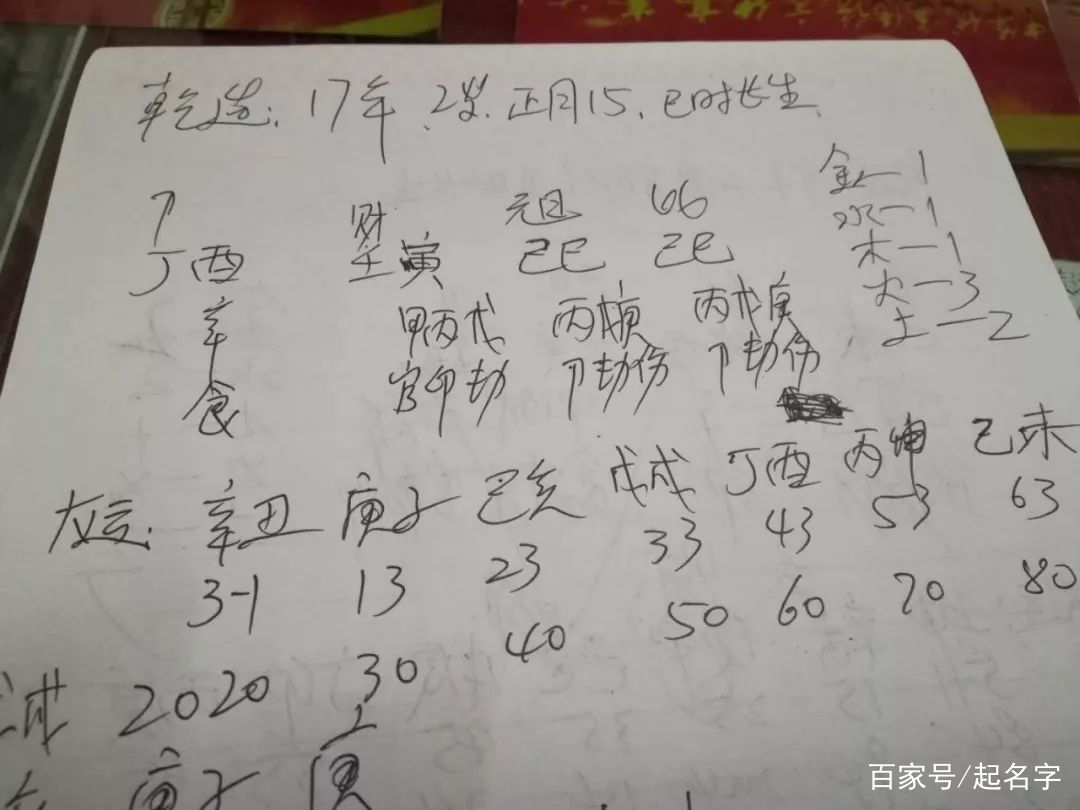 乾造: 17年、2岁.正月15、巳时长生.
金一1
水一1
木一1
火一3
土一2
卩 财 元旦 比
丁酉 壬寅 己巳 己巳
辛 甲丙戊 丙戊庚 丙戊庚
食 官印劫 卩劫伤 卩劫伤
大运: 辛丑 庚子 己亥 戊戌 丁酉 丙申 己未
3-1 13 23 33 43 53 63
2020 30 40 50 60 70 80
庚子
百家号/起名字